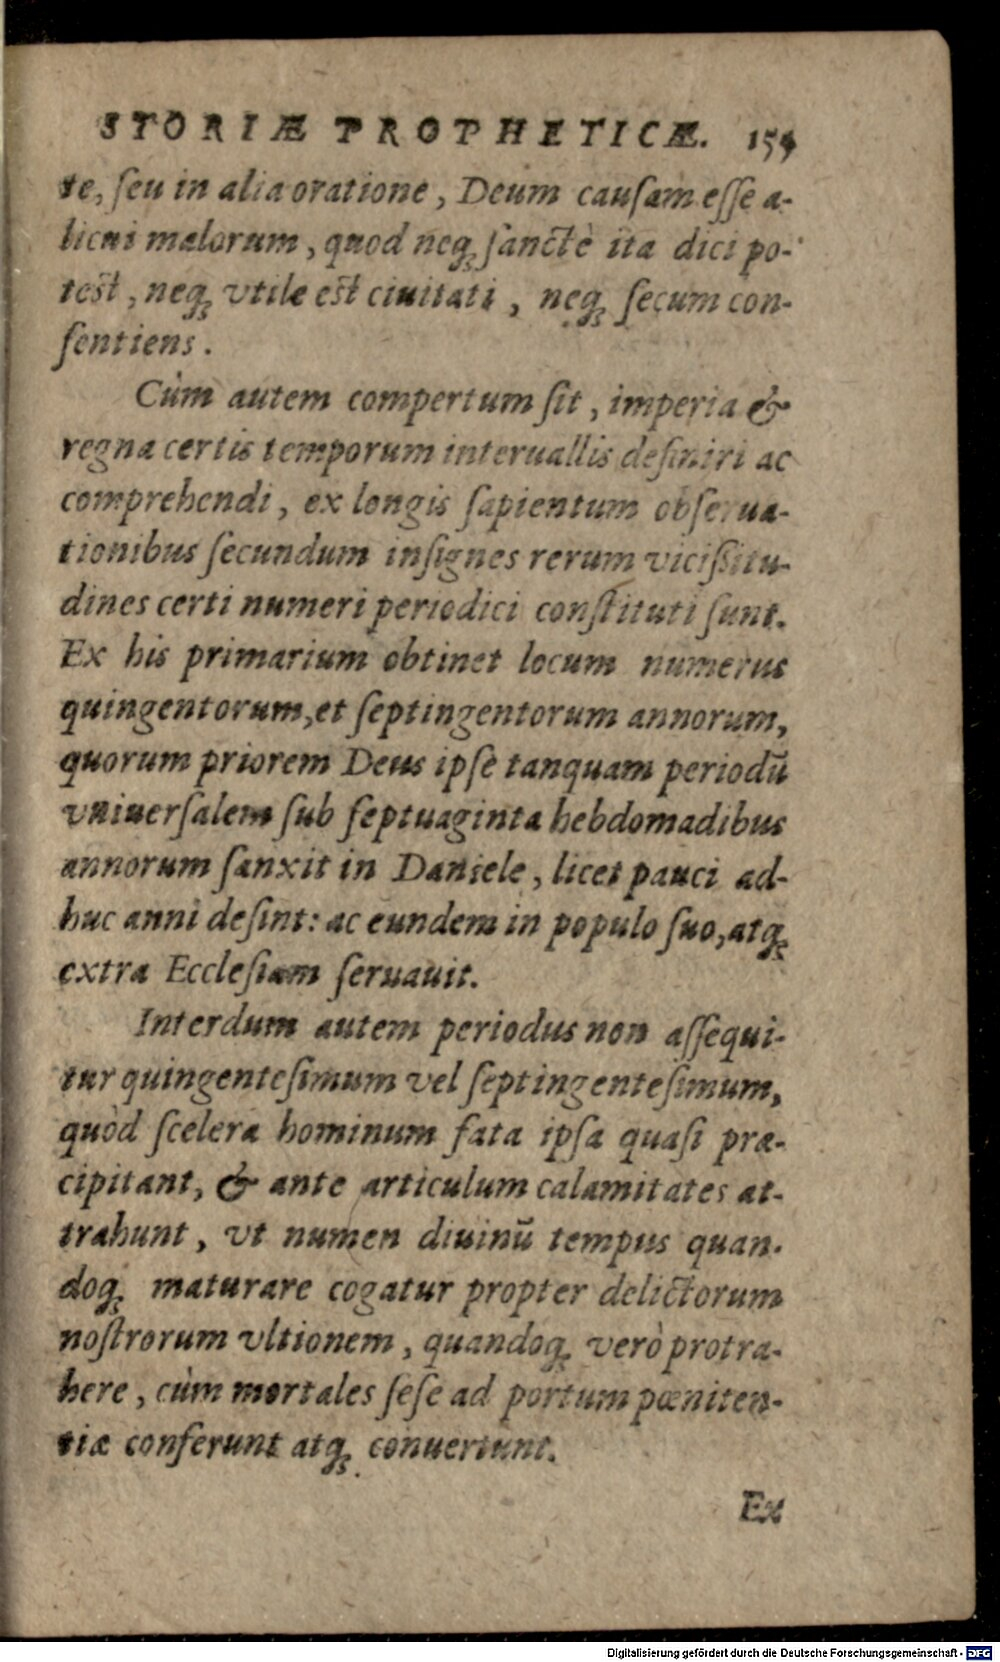 STORIÆ PROPHETICÆ. 159
te, ſeu in alia oratione, Deum cauſam eſſe a-
licui malorum, quod neq; ſanctè ita dici po-
teſt, neq; vtile eſt ciuitati, neq; ſecum con-
ſentiens.
Cùm autem compertum ſit, imperia &
regna certis temporum interuallis definiri ac
comprehendi, ex longis ſapientum obſerua-
tionibus ſecundum inſignes rerum viciſsitu-
dines certi numeri periodici conſtituti ſunt.
Ex his primarium obtinet locum numerus
quingentorum, et ſeptingentorum annorum,
quorum priorem Deus ipſe tanquam periodū
vniuerſalem ſub ſeptuaginta hebdomadibus
annorum ſanxit in Daniele, licet pauci ad-
huc anni deſint: ac eundem in populo ſuo, atq;
extra Eccleſiam ſeruauit.
Interdum autem periodus non aſſequi-
tur quingenteſimum vel ſeptingenteſimum,
quòd ſcelera hominum fata ipſa quaſi præ-
cipitant, & ante articulum calamitates at-
trahunt, vt numen diuinū tempus quan-
doq; maturare cogatur propter delictorum
noſtrorum vltionem, quandoq; verò protra-
here, cùm mortales ſeſe ad portum pœniten-
tiæ conferunt atq; conuertunt.
Ex
Digitalisierung gefördert durch die Deutsche Forschungsgemeinschaft - DFG